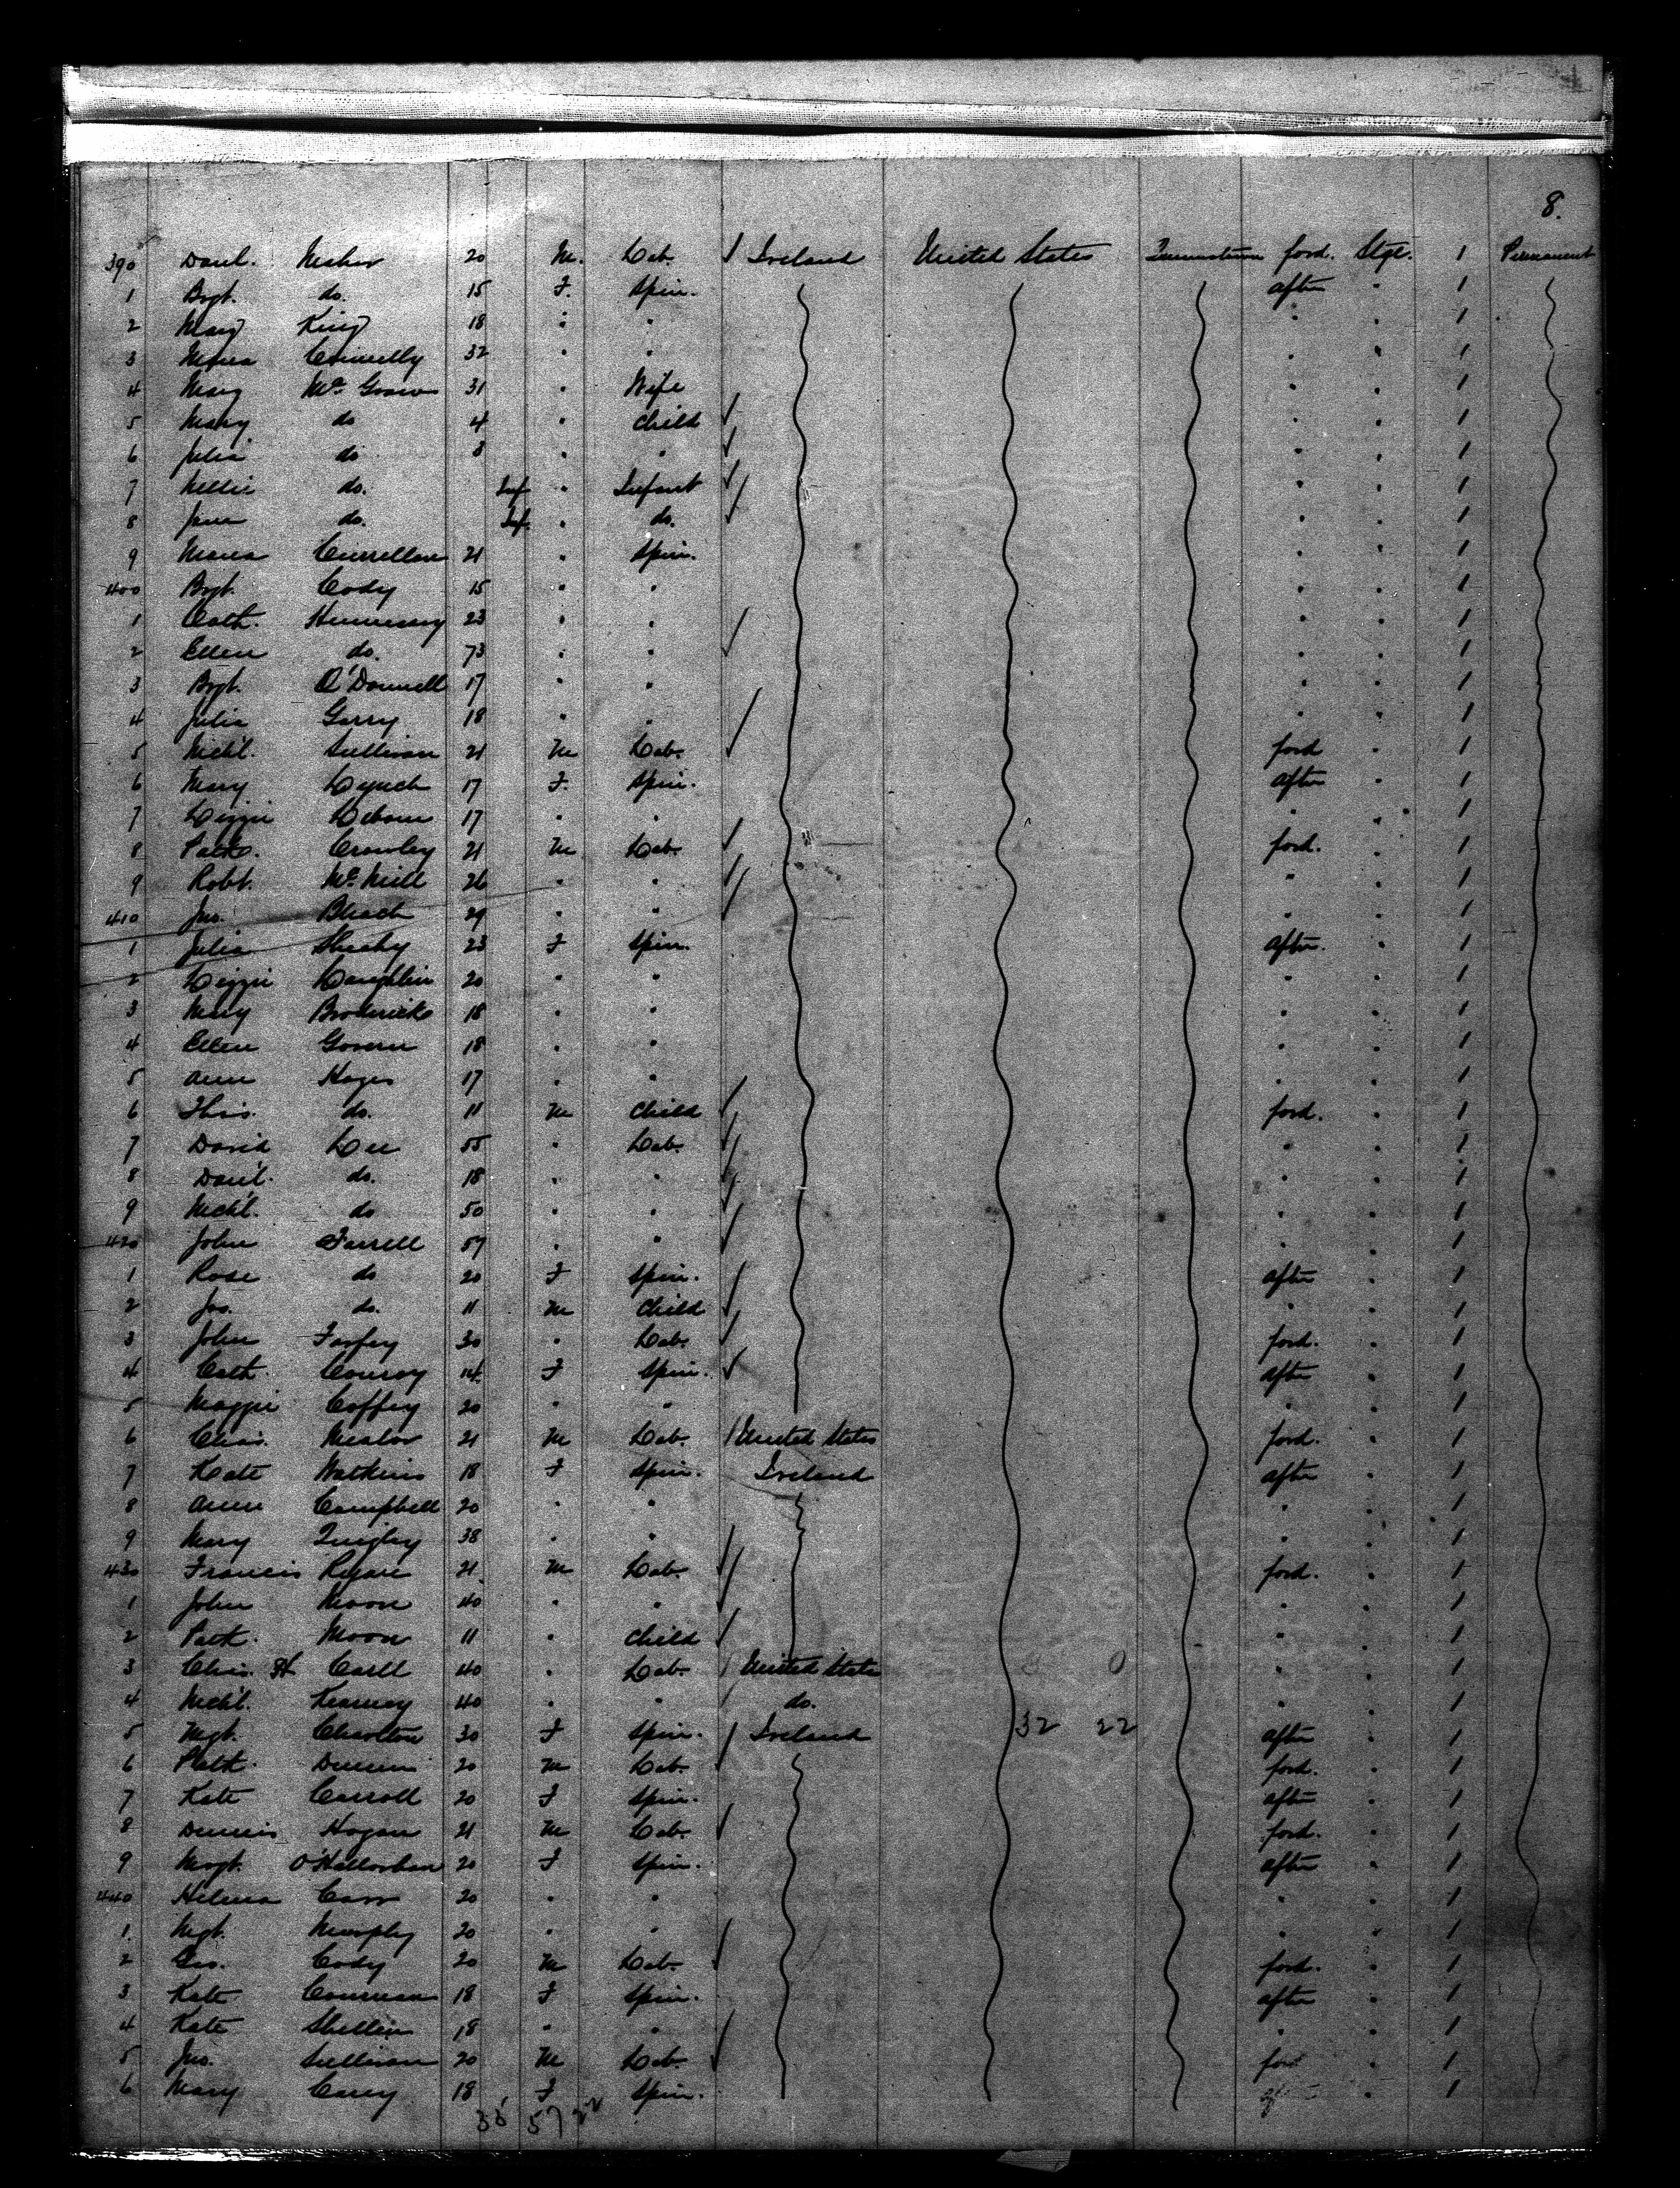 8.
390 Danl. Meher 20 M. Lab. / Ireland United States Queenstown ford. Stge. 1 Permanent
1 Bgt. do. 15 F. Spin. after " 1
2 Mary King 18 " " " " 1
3 Maria Connelly 32 " " " " 1
4 Mary McGraw 31 " Wife " " 1
5 Mary do 4 " Child " " 1
6 Julia do 3 " " " " 1
7 Nellie do. Inf " Infant " " 1
8 Jane do. Inf. " do. " " 1
9 Maria 21 " Spin. " " 1
400 Bgt. Cody 15 " " " " 1
1 Cath. Hennessy 23 " " " " 1
2 Ellen do. 73 " " " " 1
3 Bgt. O'Donnell 17 " " " " 1
4 Julia Garry 18 " " " " 1
5 Michl. Sullivan 21 M Lab. ford " 1
6 Mary Lynch 17 F. Spin. after " 1
7 Lizzie 17 " " " " 1
8 Patk. Crowley 21 M Lab. ford. " 1
9 Robt. McNeill 26 " " " " 1
410 Jno. Bleach 29 " " " " 1
1 Julia Sheehy 23 F Spin. after. " 1
2 Lizzie Laughlin 20 " " " " 1
3 Mary Broderick 18 " " " " 1
4 Ellen Govern 18 " " " " 1
5 Ann Hayes 17 " " " " 1
6 Thos. do. 11 M Child ford. " 1
7 David Lee 55 " Lab. " " 1
8 Danl. do. 18 " " " " 1
9 Michl. do 50 " " " " 1
420 John Farrell 57 " " " " 1
1 Rose do 20 F Spin. after " 1
2 Jos. do. 11 M Child " " 1
3 John 30 " Lab. ford. " 1
4 Cath. Conroy 14 F Spin. after " 1
5 Maggie Coffey 20 " " " " 1
6 Chas. 21 M Lab. / United States ford. " 1
7 Kate Watkins 18 F Spin. Ireland after " 1
8 Ann Campbell 20 " " " " 1
9 Mary Quigley 38 " " " " 1
430 Francis Ryan 21 M Lab. ford. " 1
1 John Moon 40 " " " " 1
2 Patk. Moon 11 " Child " " 1
3 Chas. H Carll 40 " Lab. / United States 0 " " 1
4 Michl. Kearney 40 " " / do. " " 1
5 Mgt. Charlton 30 F Spin. / Ireland 32 22 after " 1
6 Patk. 20 M Lab. ford. " 1
7 Kate Carroll 20 F Spin. after " 1
8 Dennis Hogan 21 M Lab. ford. " 1
9 Margt. O'Hallorhan 20 F Spin. after " 1
440 Helena Carr 20 " " " " 1
1. Mgt. Murphy 20 " " " " 1
2 Geo. Cody 20 M Lab. ford. " 1
3 Kate 18 F Spin. after " 1
4 Kate 18 " " " " 1
5 Jno. Sullivan 20 M Lab. ford " 1
6 Mary Carey 18 F Spin. " 1
35 57 22